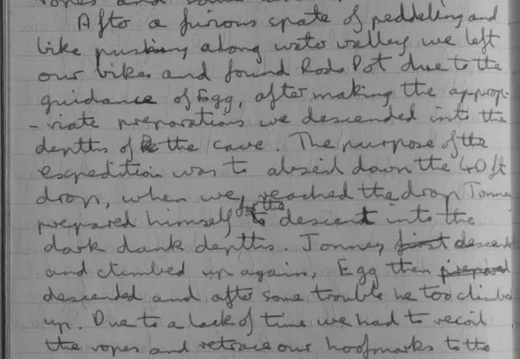 After a furious spate of peddeling and
bike pushing along wato valley we left
our bikes and found Rods Pot due to the
guidance of Egg, after making the approp-
-riate preparations we descended into the
depths of the cave. The purpose of the
expedition was to abseil down the 40ft
drop, when we reached the drop Tonney
prepared himself for the descent into the
dark dank depths. Tonney first descended
and climbed up again, Egg then prepared
descended and after some trouble he too climbed
up. Due to a lack of time we had to recoil
the ropes and retrace our hoofmarks to the